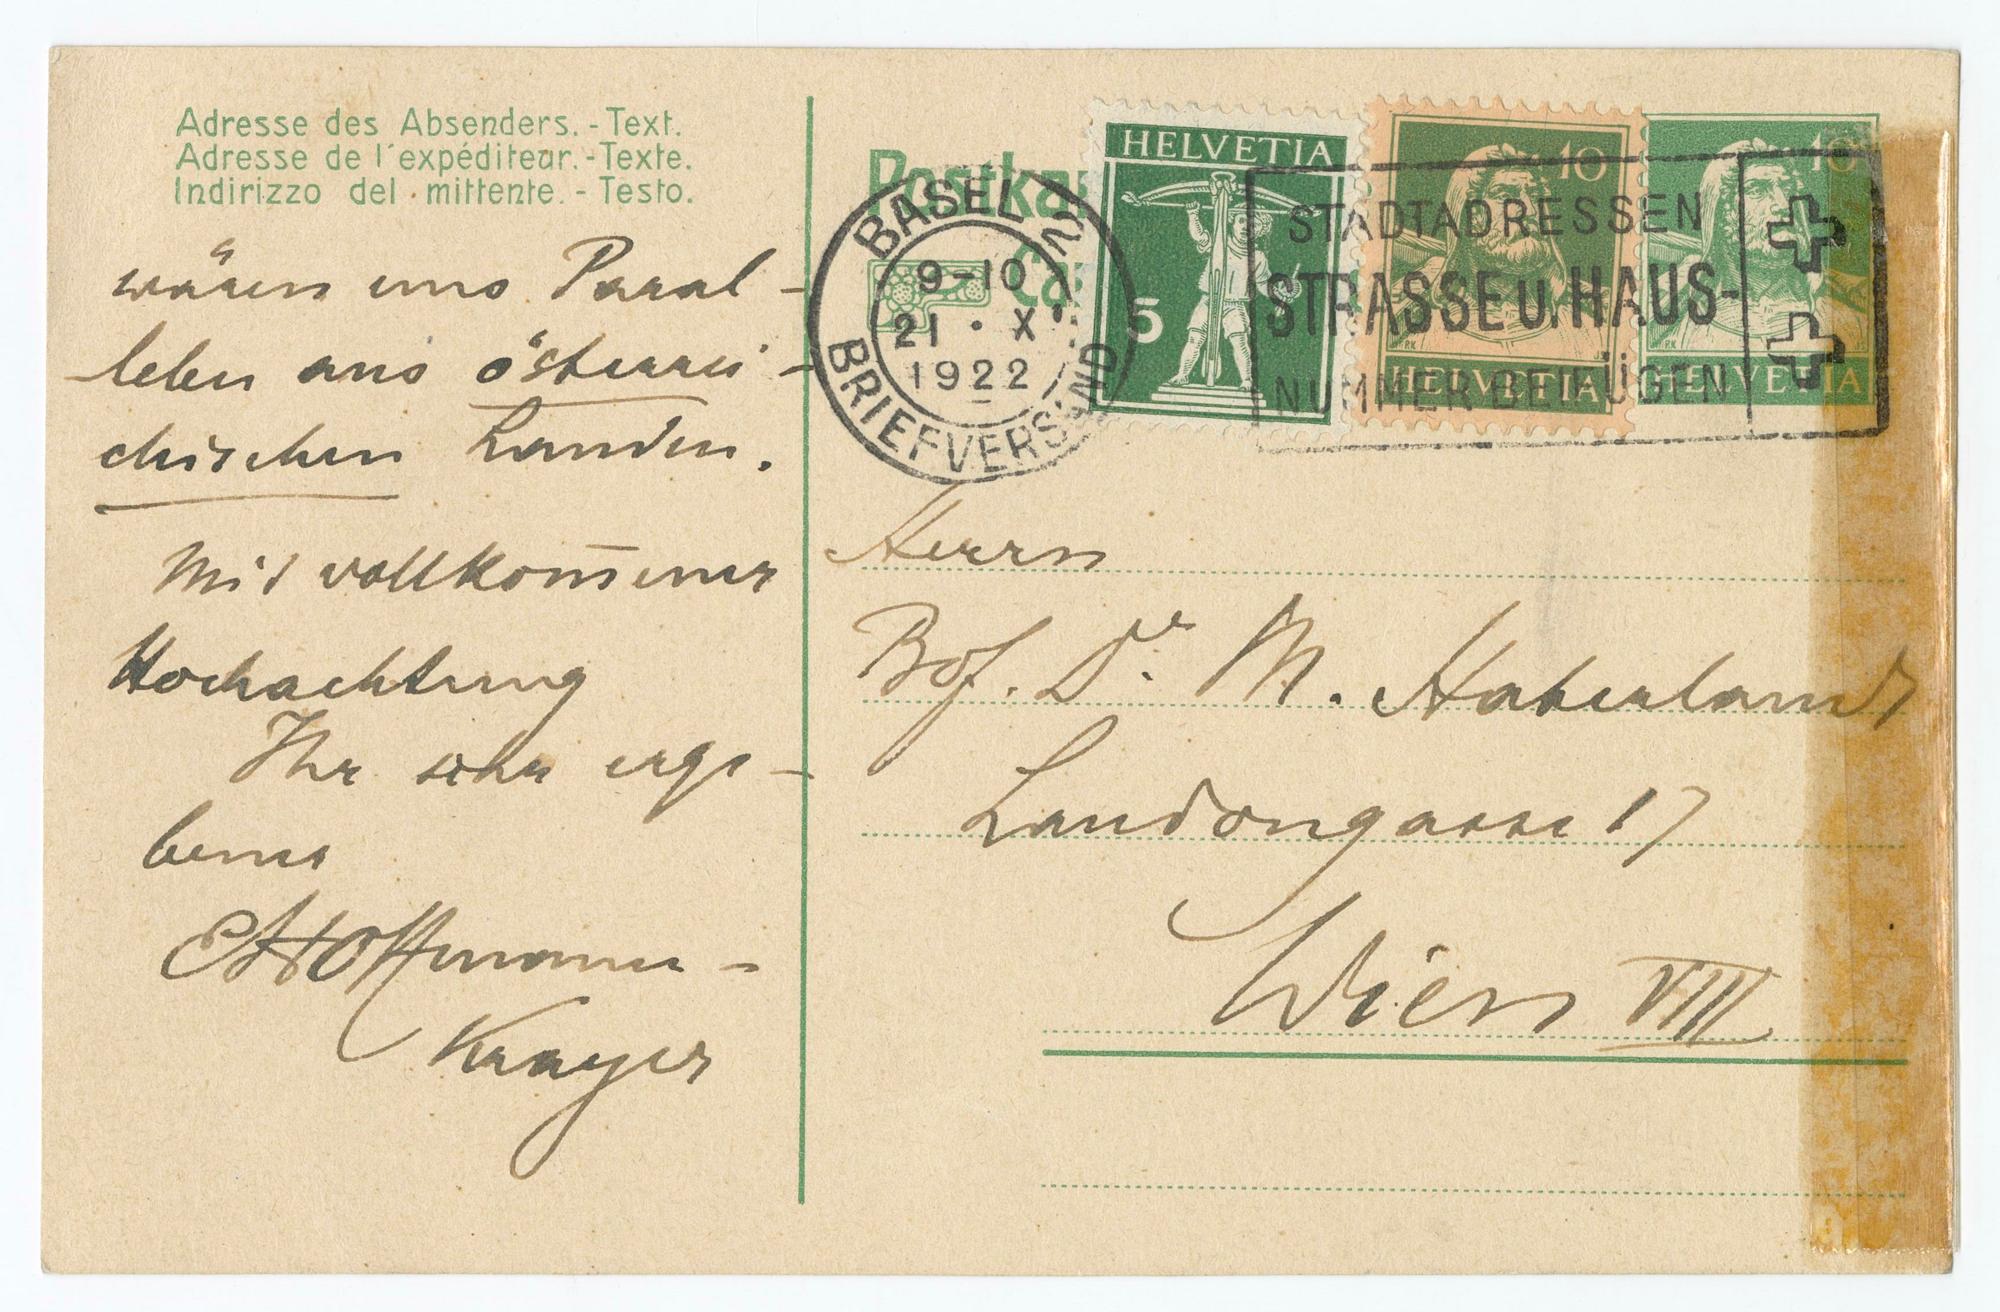 Adresse des Absenders. - Text.
Adresse de l'expéditeur. - Texte.
Indirizzo del mittente. - Testo.
wären uns Paral-
lelen aus österrei-
chischen Landen.
Mit vollkom̅ener
Hochachtung
Ihr sehr erge-
bener
EHoffmann-
Krayer
Postkar
Ca
BASEL 2
9-10
21 · X
1922
BRIEFVERSAND
HELVETIA
5
10
HELVETIA
10
HELVETIA
STADTADRESSEN
STRASSE u. HAUS-
NUMMER BEIFÜGEN
Herrn
Prof. Dr. M. Haberlandt
Laudongasse 17
Wien VIII